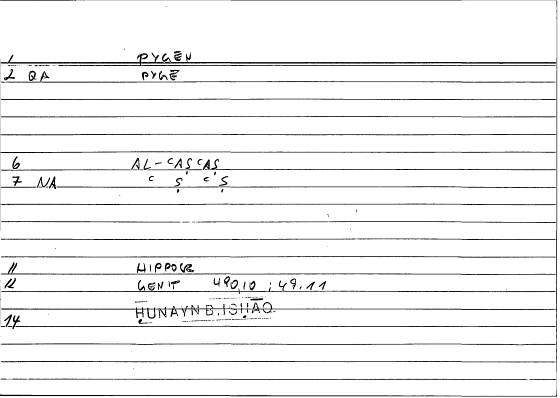 1 PYGĒN
2 QA PYGĒ
6 AL-ʿAṢʿAṢ
7 NA ʿ Ṣ ʿ Ṣ
11 HIPPOCR
12 GENIT 490,10 ; 49.11
14 ḤUNAYN B. ISḤĀQ